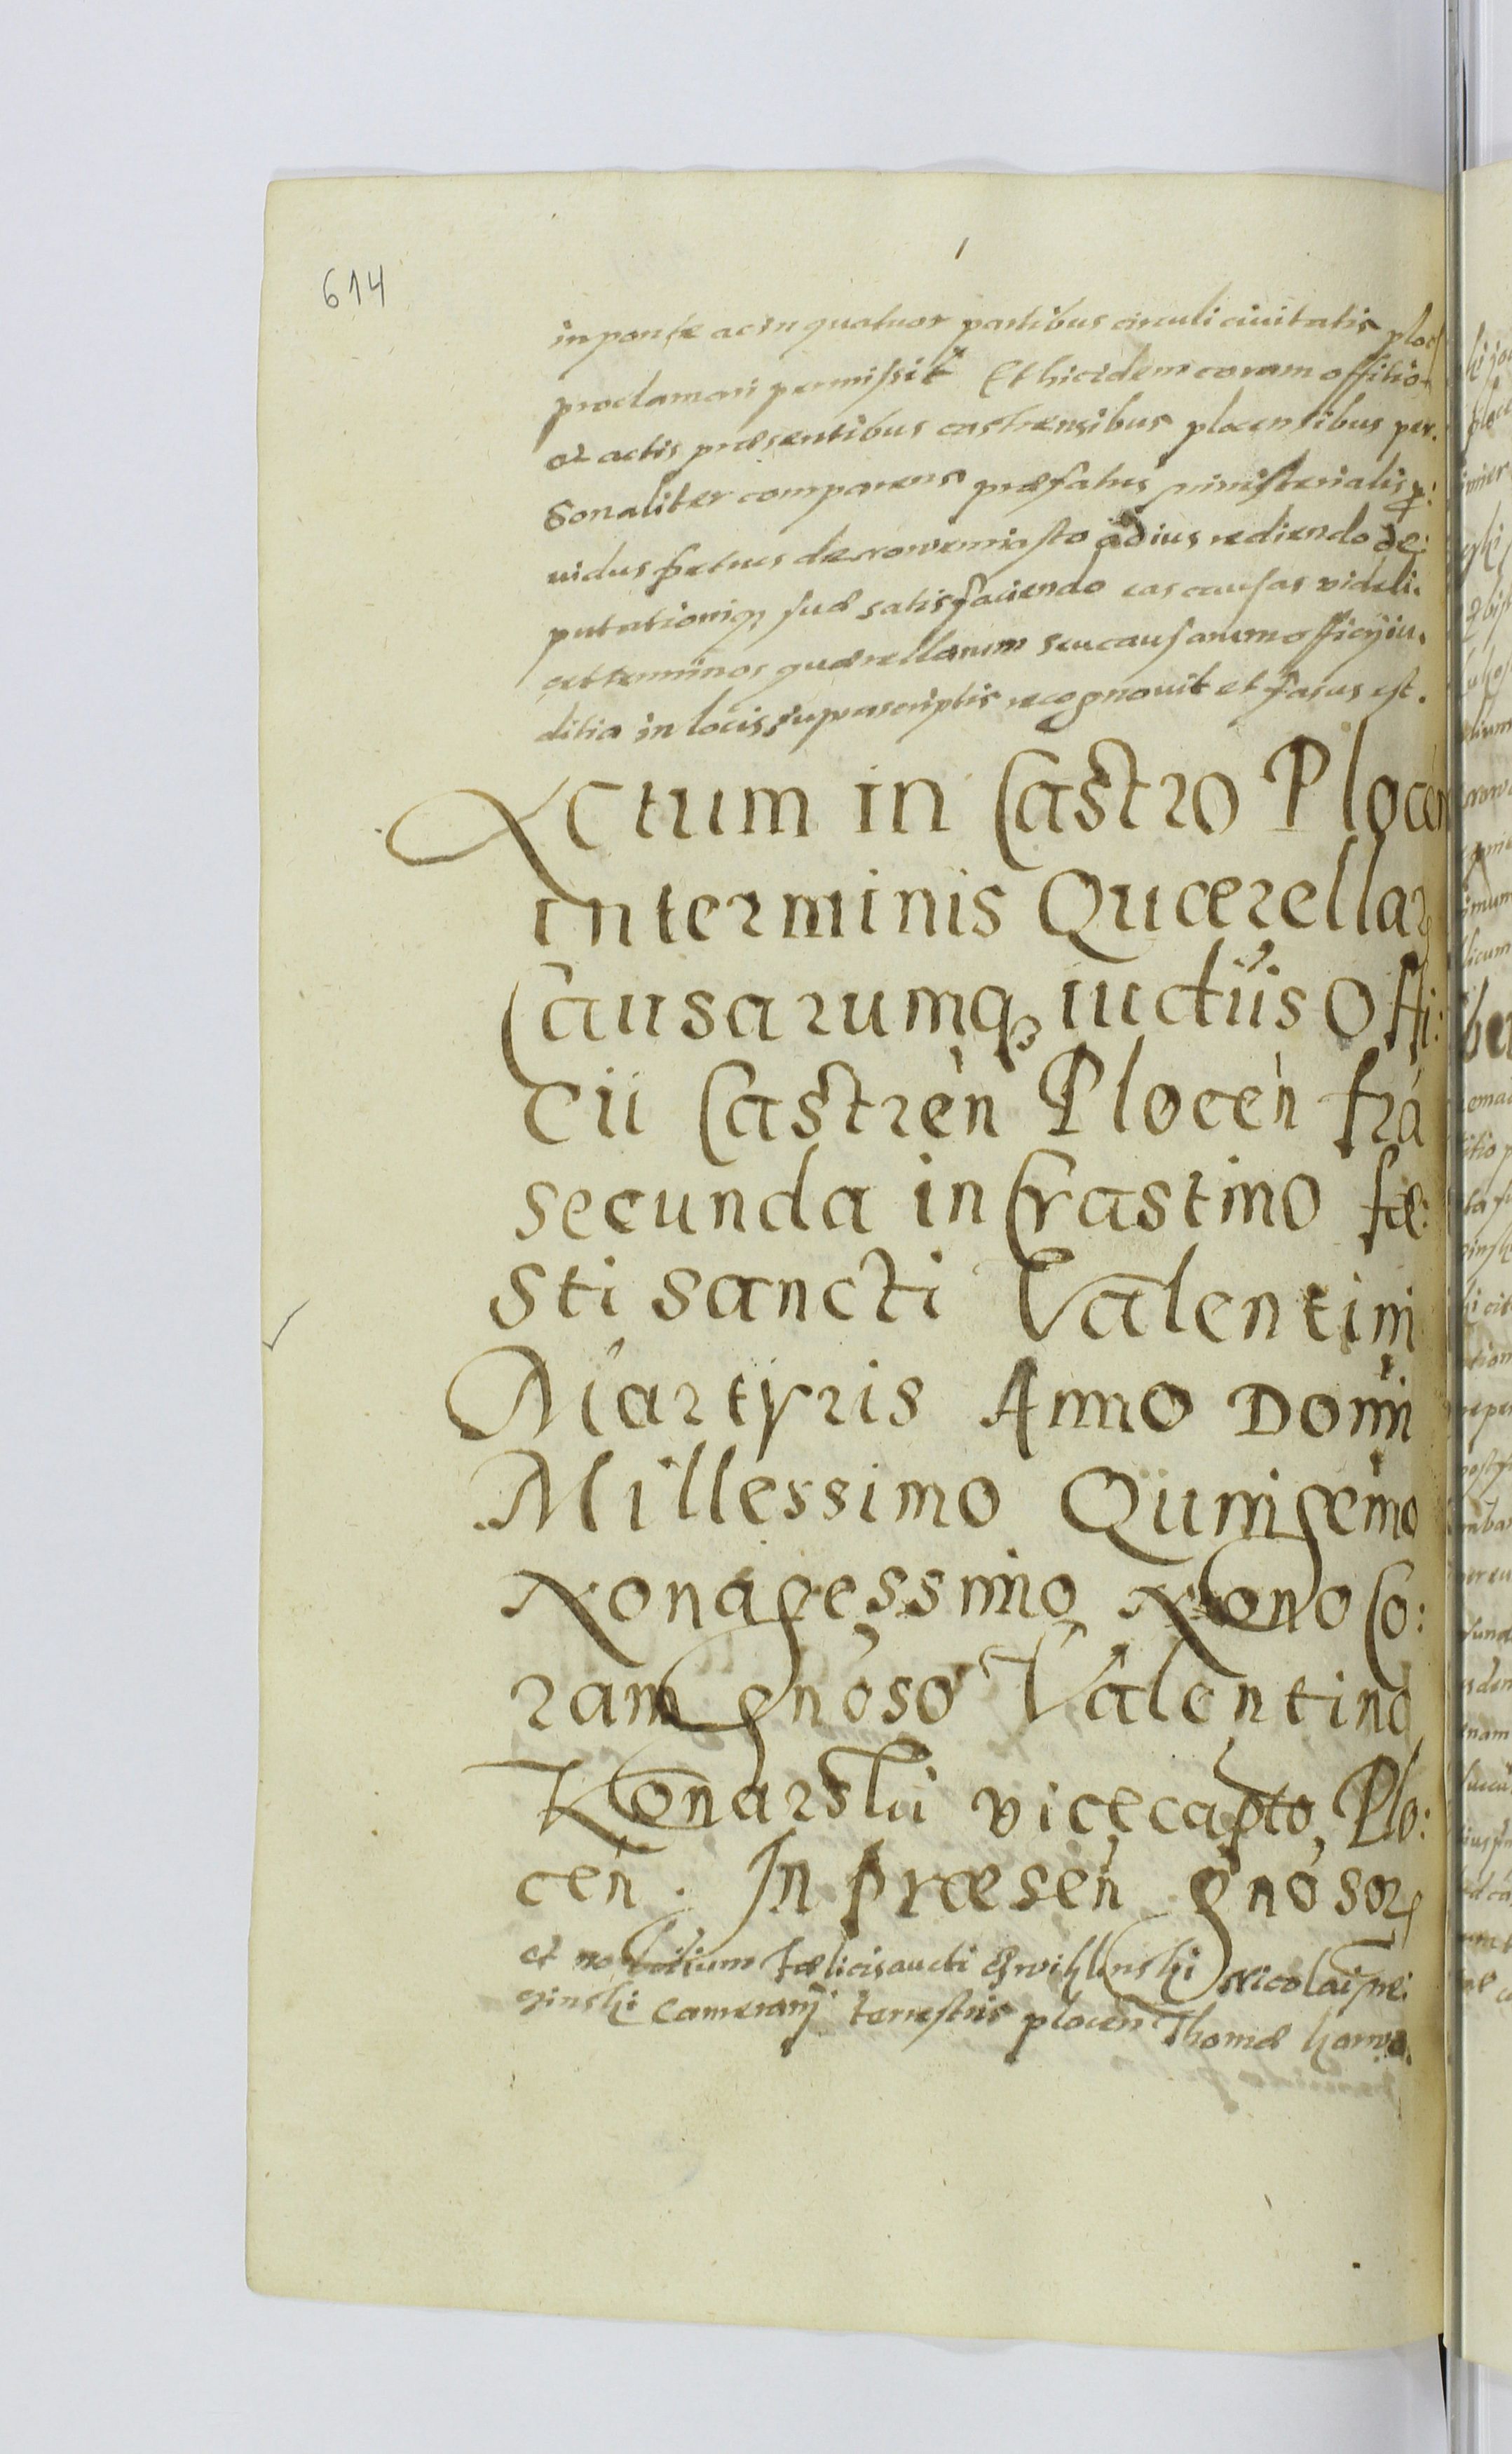 614
in ponte ac in quatuor partibus circuli ciuitatis ploc
proclamari permissit Et hic idem coram offitio
et actis præsentibus castrensibus plocensibus per.
Sonaliter comparens præfatus ministerialis p:
uidus petrus de nowemiasto ad ius rediendo de:
putationiq3 suæ satisfaciendo eas causas videli.
cet terminos quærellarum seu causarum officÿ iu.
ditia in locis suprascriptis recognouit et fasus est.
Actum in Castro Plocen
in terminis Quærellar
Causarumq3 iuditiis Offi:
cii Castren Plocen fra
secunda in Crastino fæ:
sti sancti Valentini
Martyris Anno Domi
Millessimo Quingemo
Nonagessimo Nono Co:
ram gnoso Valentino
Konarski vicecapto Plo:
cen. In præsen gnosor
et nobilium Fælicis aucti Nicolai
Camerarÿ terrestris plocen Thomæ